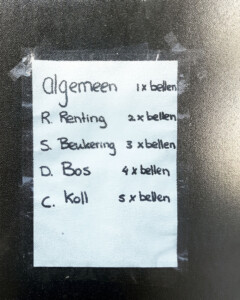 algemeen 1 x bellen
R. Renting 2 x bellen
S. Beukering 3 x bellen
D. Bos 4 x bellen
C. Koll 5 x bellen